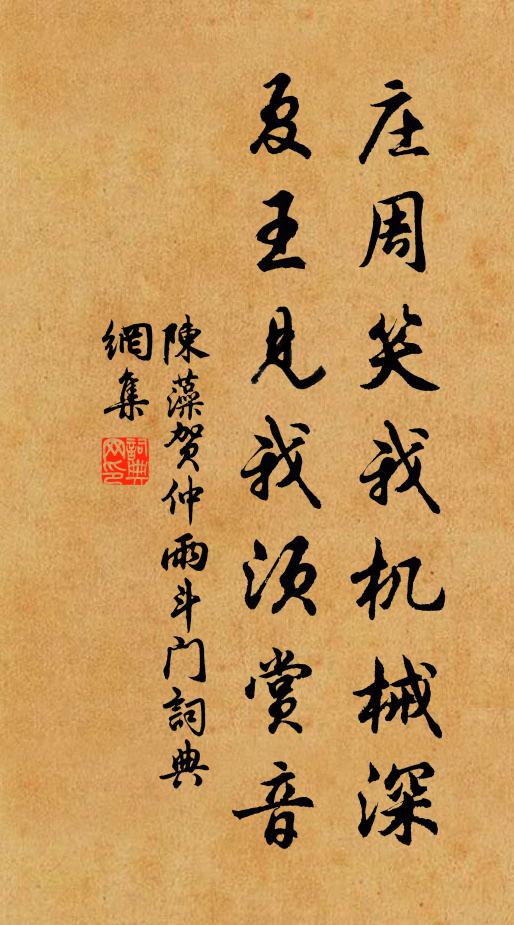 庄周笑我机械深
夏王见我须赏音
陳藻贺仲雨斗门詞典
網集
詞典
网印